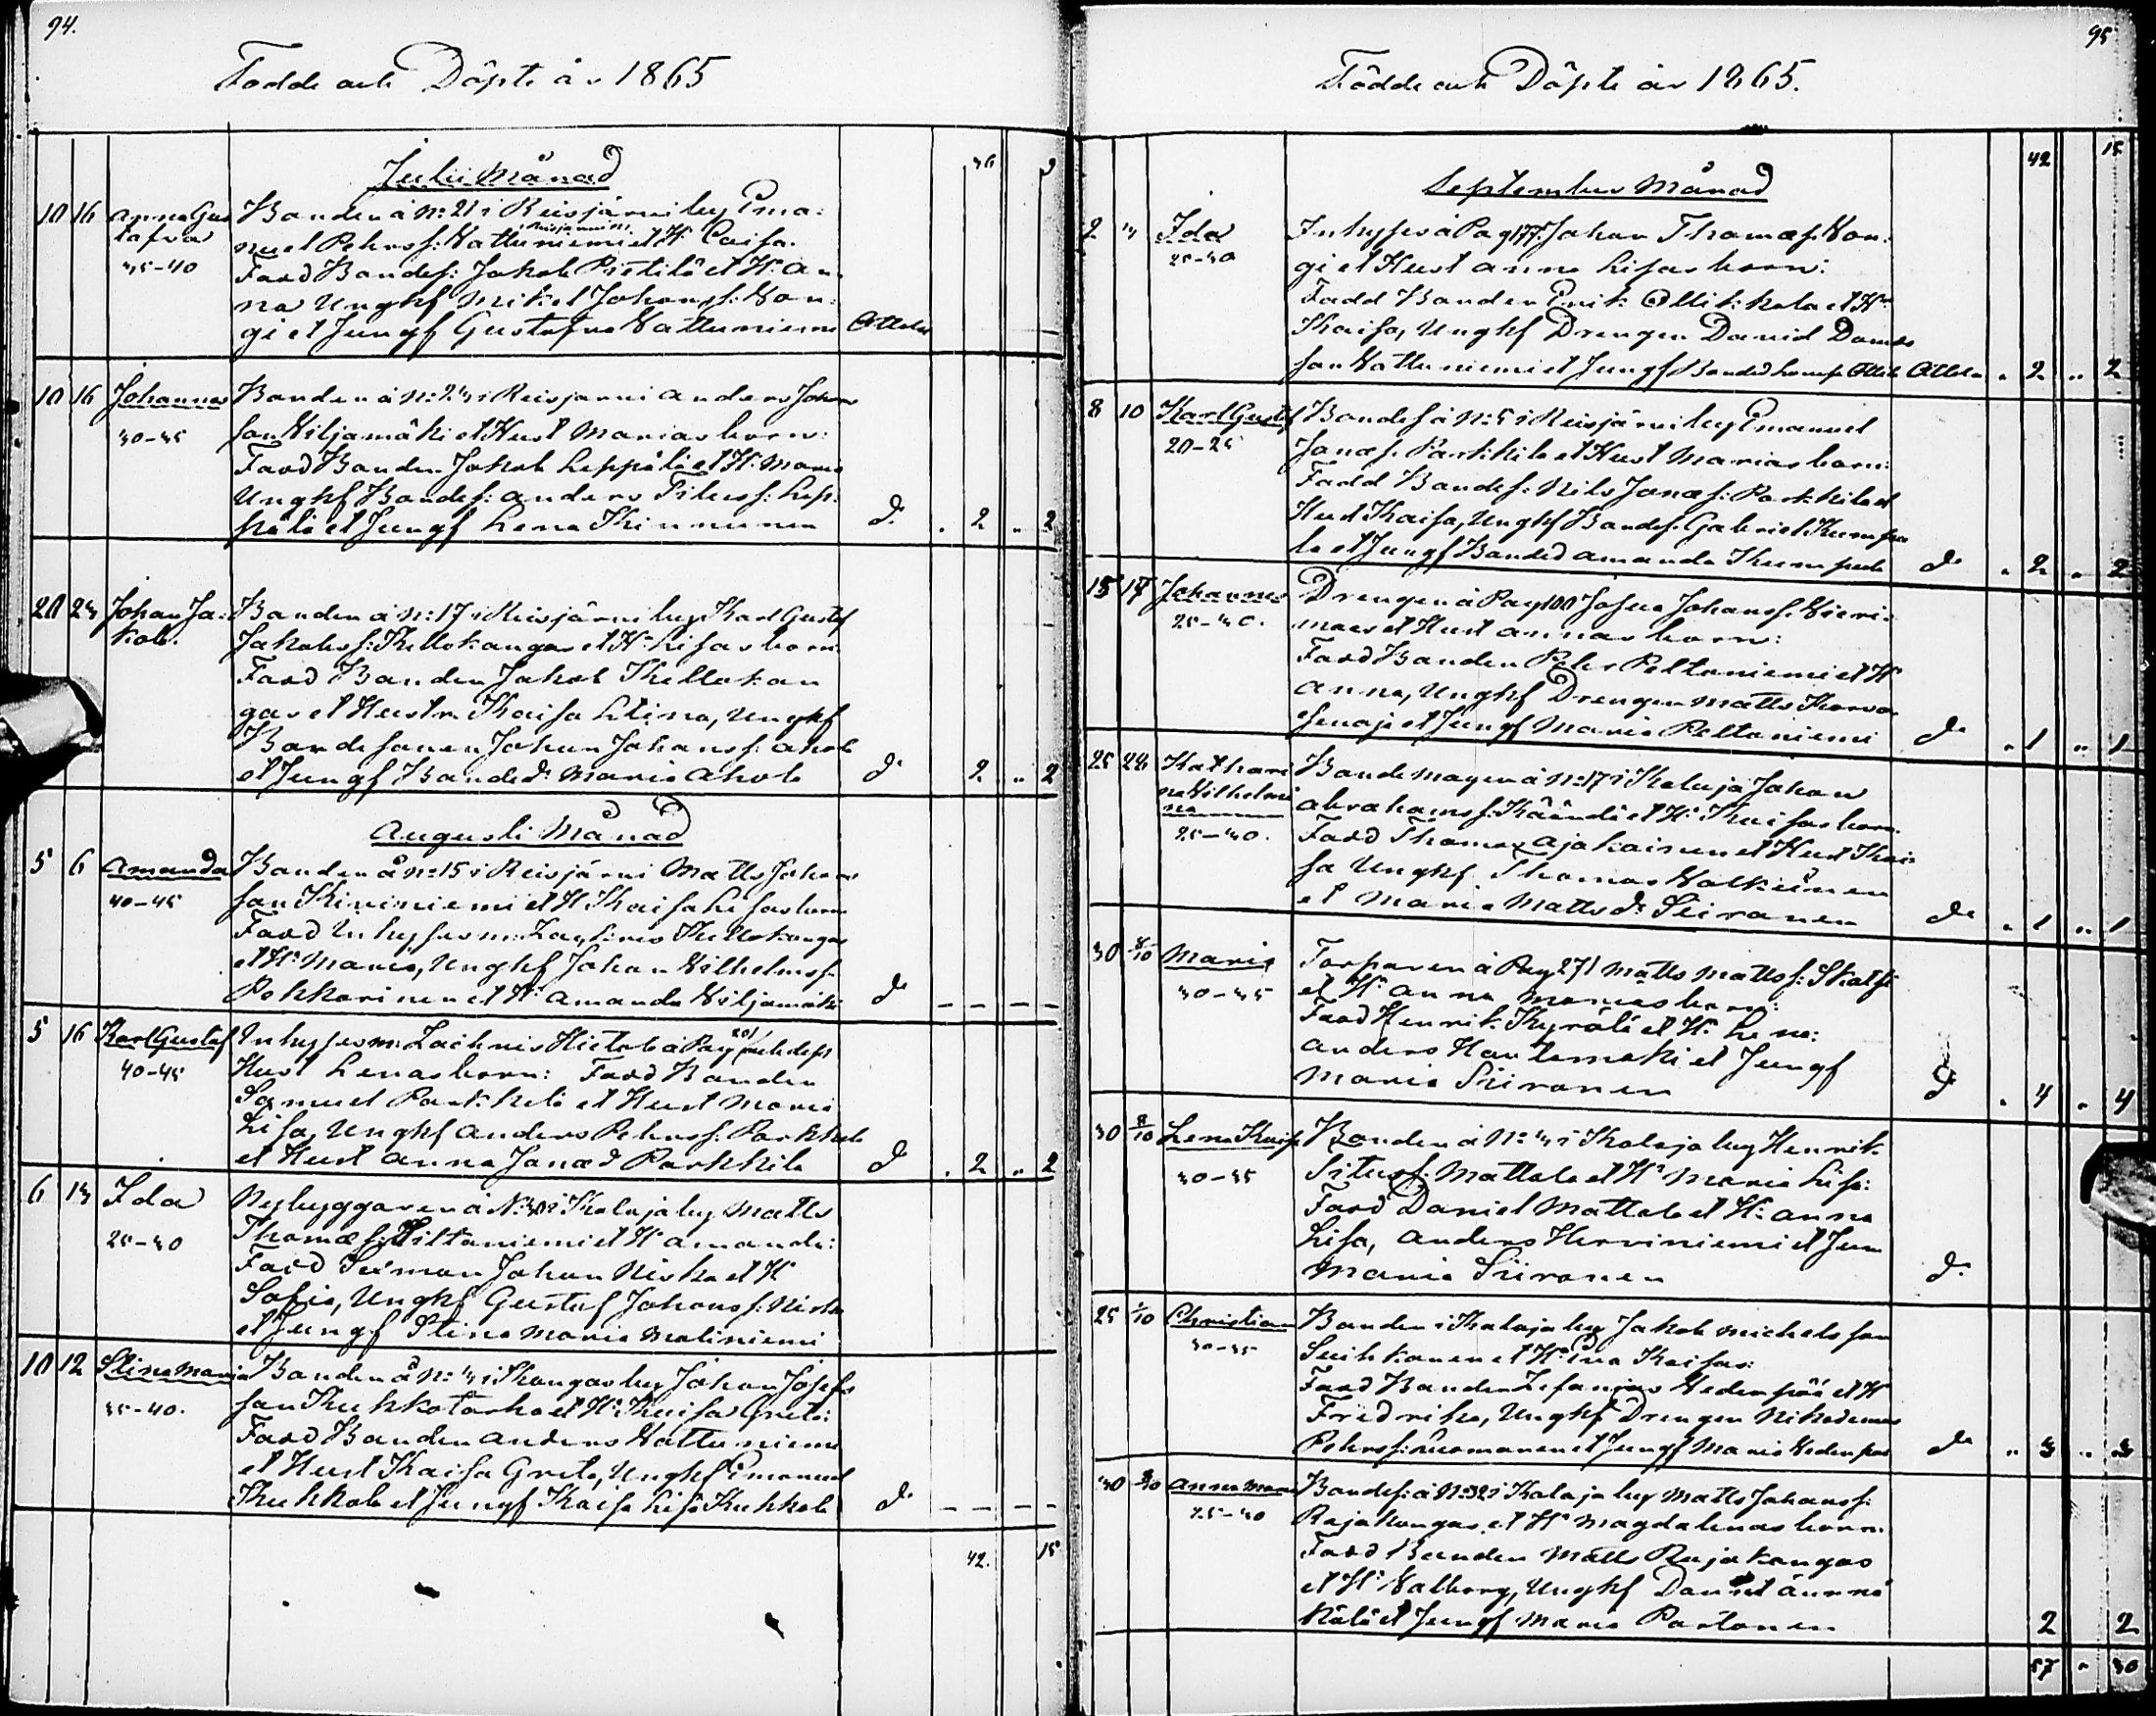 94.
Födde och Döpte år 1865
36 9
Julii Månad
10 16 Anna Gus Bonden å No: 21 i Reisjärvi by Ema:
tafva nuel Pehrss: Vattuniemi et H: Caisa.
35-40 Fadd Bondes: Jakob Pietilä et H: An
na Ungkf Mikel Johanss: Kan:
gi et Jungf Gustafva Vattuniemi
10 16 Johannes Bonden å No: 24 i Reisjarvi Anders Johan
30-35 son Kiljamäki et Hust Marias barn:
Fadd Bonden Jakob Leppälä et H: Maria
Ungkf Bondes: Anders Titus s: Lep:
pälä et Jungf Lena Kinnunen do . 2 .. 2
20 24 Johan Ja: Bonden å No: 17 i Reisjärvi by Karl Gustaf
kob. Jakobs s: Kellokangas et H: Lisas barn
Fadd Bonden Jakob Kellokan
gas et Hustr. Kaisa Stina, Ungkf
Bondesonen Johan Johanss: Ahola
et Jungf Bonded: Maria Ahola do 2 .. 2
Augusti Månad
5 6 Amanda Bonden å No: 15 i Reisjärvi Matts Johan
40-45 son Kiviniemi et H Kaisa Lisas barn
Fadd Inhyses m: Zachris Kellokangas
et H: Maria, Ungkf Johan Vilhelms s:
Pekkarinen et H: Amanda Kiljamäki do
5 16 Karl Gustaf Inhyses m: Zachris Hietala å Pag 201/
40-45 Hust Lenas barn: Fadd Bonden
Samuel Parkkila et Hust Maria
Lisa, Ungkf Anders Pehrs s: Parkkila
et Hust Anna Jonæd Parkkila do . 2 .. 2
6 13 Ida Nybyggaren å No: 30 i Kalaja by Matts
25-30 Thomæ s: Hiltaniemi et H Amanda:
Fadd Johan Niska et H
Sofia, Ungkf Gustaf Johans s: Niska
et Jungf Stina Maria Maliniemi
10 12 Stina Maria Bonden å No: 4 i Kangas by Johan Josefs
35-40. son Kukkotarha et H: Kaisa Greta:
Fadd Bonden Anders Vattuniemi
et Hust Kaisa Greta, Ungkf Emanuel
Kukkola et Jungf Kaisa Lisa Kukkola do
42. 15
95
Födde och Döpte år 1865.
42 15
September Månad
2 3 Ida Inhyses å Pag 177: Johan Thomæ s. Kan:
25-30 gi et Hust Anna Lisas barn:
Fadd Bonden Erik Ollikkala et H:
Kaisa, Ungkf Drengen David Daniels
son Vattuniemi et Jungf . 2 .. 2
8 10 Karl Gustaf Bondes å No: 5 i Reisjärvi by Emanuel
20-25 Jonæ s. Parkkila et Hust Marias barn:
Fadd Bondes: Nils Jonæ s: Parkkila et
Hust Kaisa, Ungkf Bondes: Gabriel Kumpu
la et Jungf Bonded Amanda Kumpula do . 2 .. 2
15 17 Johannes Drengen å Pag 100 Josua Johans s. Vieri
25-30. maa et Hust Annas barn:
Fadd Bonden Pehr Peltoniemi et H
Anna, Ungkf Drengen Matts Korva
et Jungf Maria Peltoniemi do . 1 .. 1
25 28 Kathari Bondemågen å No: 17 i Kalaja Johan
na Vilhelmi Abrahams s: Kääntä et H: Kaisas barn.
na Fadd Thomas Ajokainen et Hust Kai
25-30. sa Ungkf Thomas Valkiinen
et Maria Matts d: Siironen do . 1 .. 1
30 8/10 Maria Torparen å Pag 271 Matts Matts s: Skalsi
30-35 et H: Anna Marias barn:
Fadd Henrik Kyrölä et H: Lena:
Anders Hautamäki et Jungf
Maria Siironen do . 4 . 4
30 8/10 Lena Kaisa Bonden å No: 4 i Kalaja by Henrik
30-35 Titus s: Mattala et H: Maria Lisa:
Fadd Daniel Mattala et H: Anna
Lisa, Anders Herviniemi et Jun
Maria Siironen do
25 1/10 Christian Bonden i Kalaja by Jakob Michels son
30-35 Suihkonen et H: Eva Kaisas:
Fadd Bonden Zefanias Hedenpää et H
Fredrika, Ungkf Drengen Nikodemus
Pehrs s: Luomanen et Jungf Maria Hedenpää do .. 3 .. 3
30 8/10 Anna Maria Bondes: å No: 32 i Kalaja by Matts Johans s:
25-30 Rajakangas et H: Magdalenas barn.
Fadd Bonden Matts Rajakangas
et H: Valborg, Ungkf Daniel
et Jungf Maria Partanen 2 2
57 .. 30